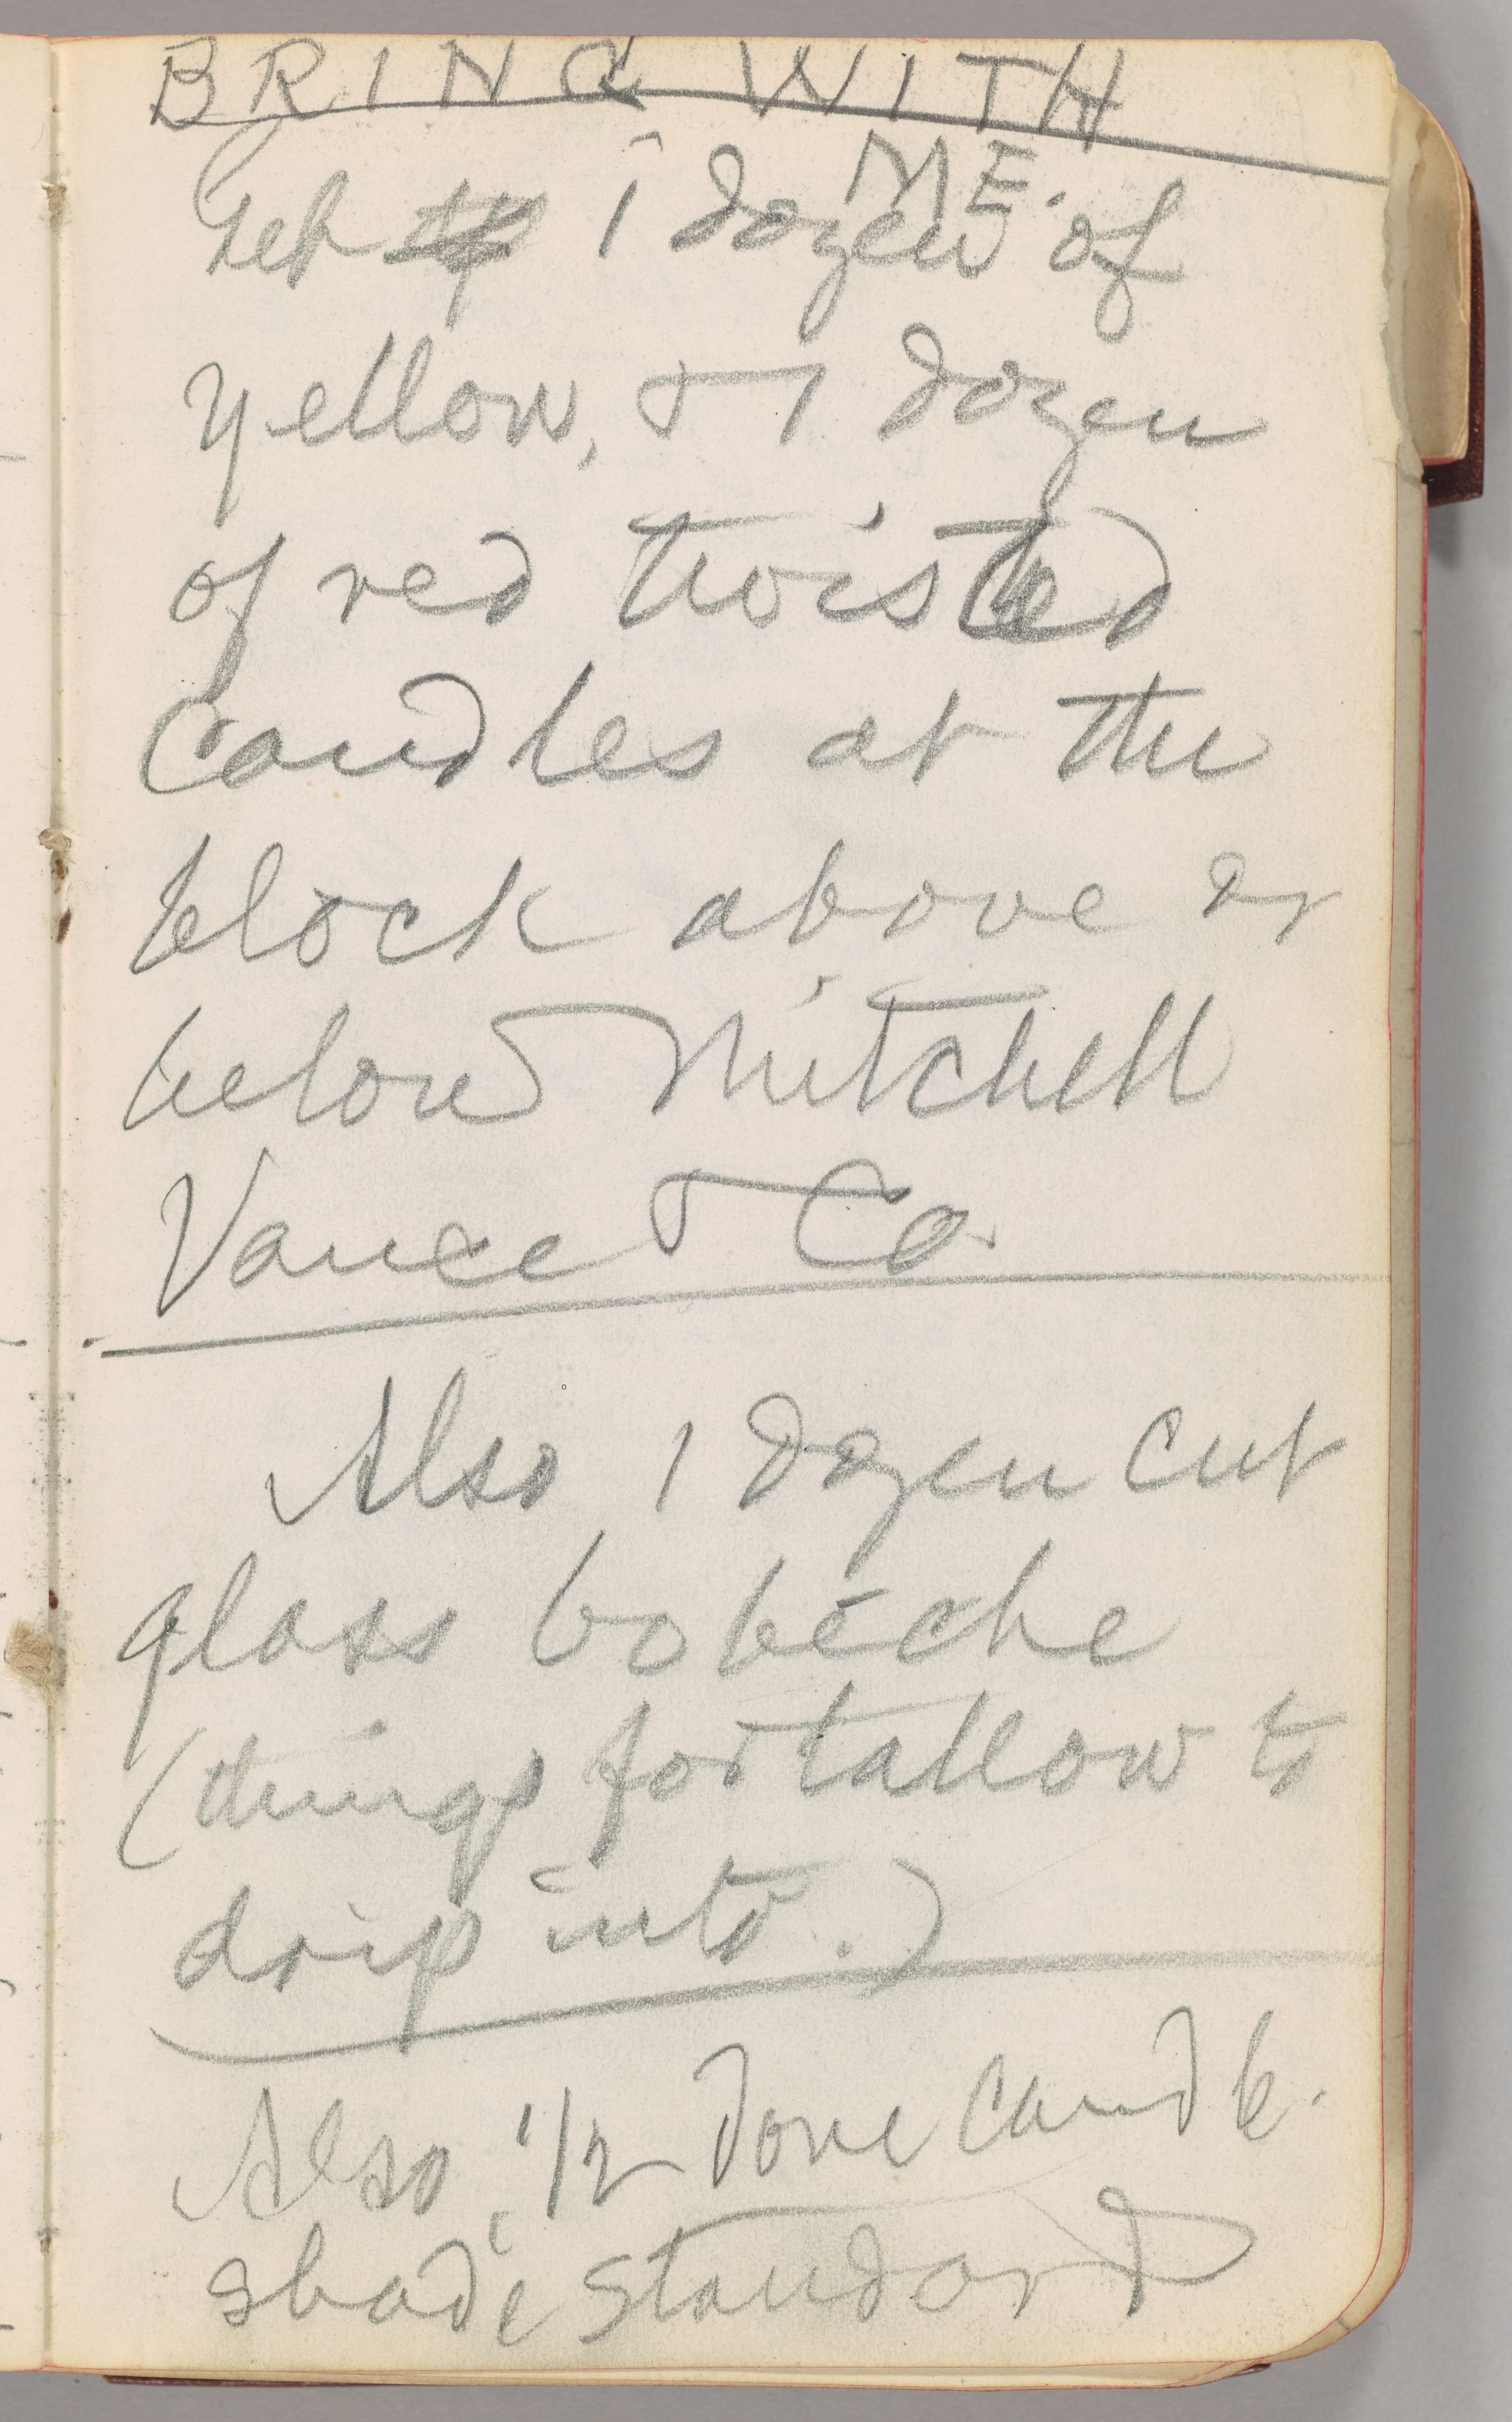 BRING WITH
ME.
Get 1 dozen of
yellow, & 1 dozen
of red twisted
candles at the
block above or
below Mitchell
Vance & Co.
Also 1 dozen cut
glass bobéche
(things for tallow to
drip into.)
Also, 1/2 candle
shade standard